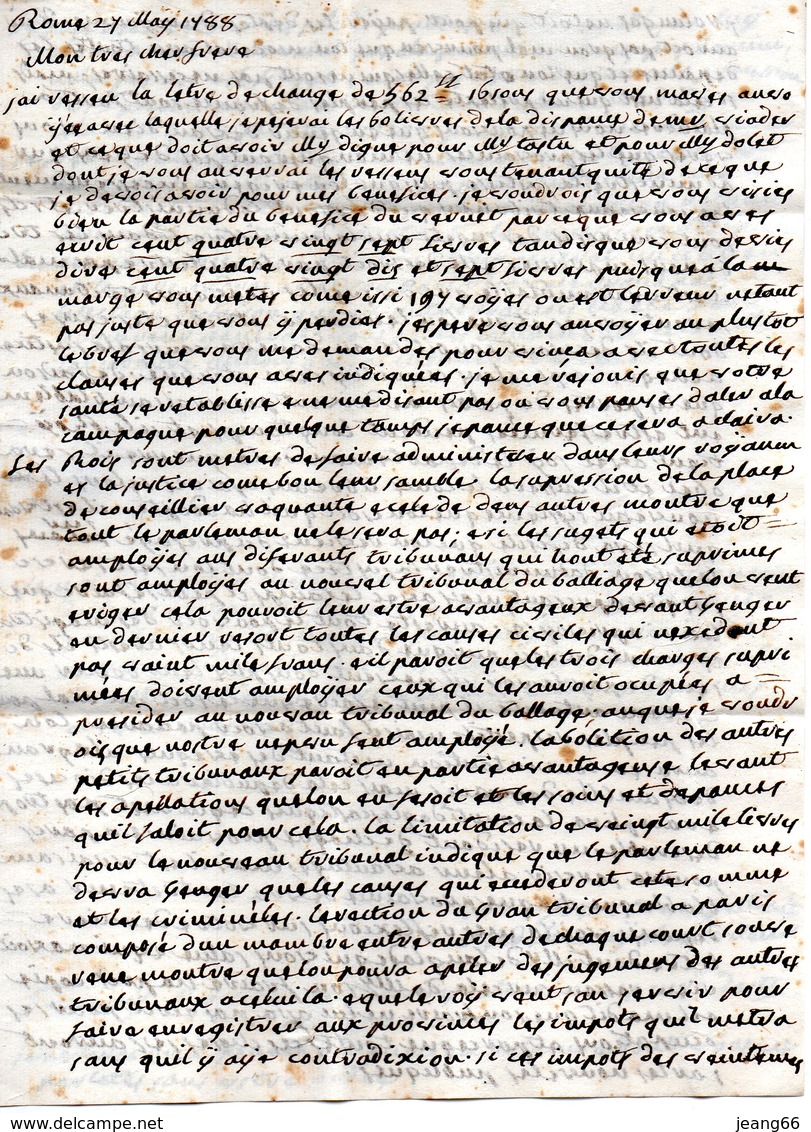 Rome 27 May 1788
Mon tres cher frere
jai ressеu la letre de change de 562 ll 16 sous que vous mares anvo
yée avec laquelle je peserai les 60 livres de la dispance de mr viader
et ce que doit avoir Mr digue pour Mr tastu et pour Mr dolet
dont je vous anverrai les ressеus vous tenant quite de ce que
je devois avoir pour mes benefices. je voudrois que vous vissies
bien la partie du benefice du vernet parceque vous aves
ecrit cent quatre vingt sept livres tandisque vous devies
dire cent quatre vingt dis et sept livres puisque á la
marge vous metes come issi 197 voÿes ou est lerreur netant
pas juste que vous ÿ perdies. jespere vous anvoÿer au plustot
le bref que vous me demandes pour vinca avec toutes les
clauses que vous aves indiquées. je me réjouis que votre
santé se retablisse e ne me disant pas ou vous panses daler a la
campagne pour quelque tamps je panse que ce sera a claira.
Les Rois sont metres de faire administrer dans leurs roÿaum
es la justice come bon leur samble la supression de la place
de conseillier vaquante e cele de deus autres montre que
tout le parleman ne le sera pas; e si les sugets qui etoit
amploÿes aus diferants tribunaus qui hont eté suprimes
sont amploÿes au nouvel tribunal du balliage que lon veut
eriger cela pouroit leur estre avantageux devant Genger
en dernier resort toutes les causes civiles qui nexedent
pas vaint mile frans. e il paroit que les trois charges supri
mées doivent amploÿer ceux qui les auroit ocupées a
presider au nouveau tribunal du ballage. auque je voudr
ois que nostre neveu feut amploÿé. labólition des autres
petits tribunaux paroit en partie avantageuse levant
les apellations que lon en fesoit et les soins et depances
quil faloit pour cela. la limitation de veingt mile livres
pour le nouveau tribunal indique que le parleman ne
devra Genger que les causes qui excederont cete somme
et les criminéles. lerection du Gran tribunal a paris
composé dun mambre entre autres de chaque court souve
rene montre que lon poura apeler des jugemens des autres
tribunaux a celui la. e que le roÿ veut san servir pour
faire enregistrer aux provinces les impots quil metra
sans quil ÿ aÿe contradixion. si ces impots des veintemes
jeang66